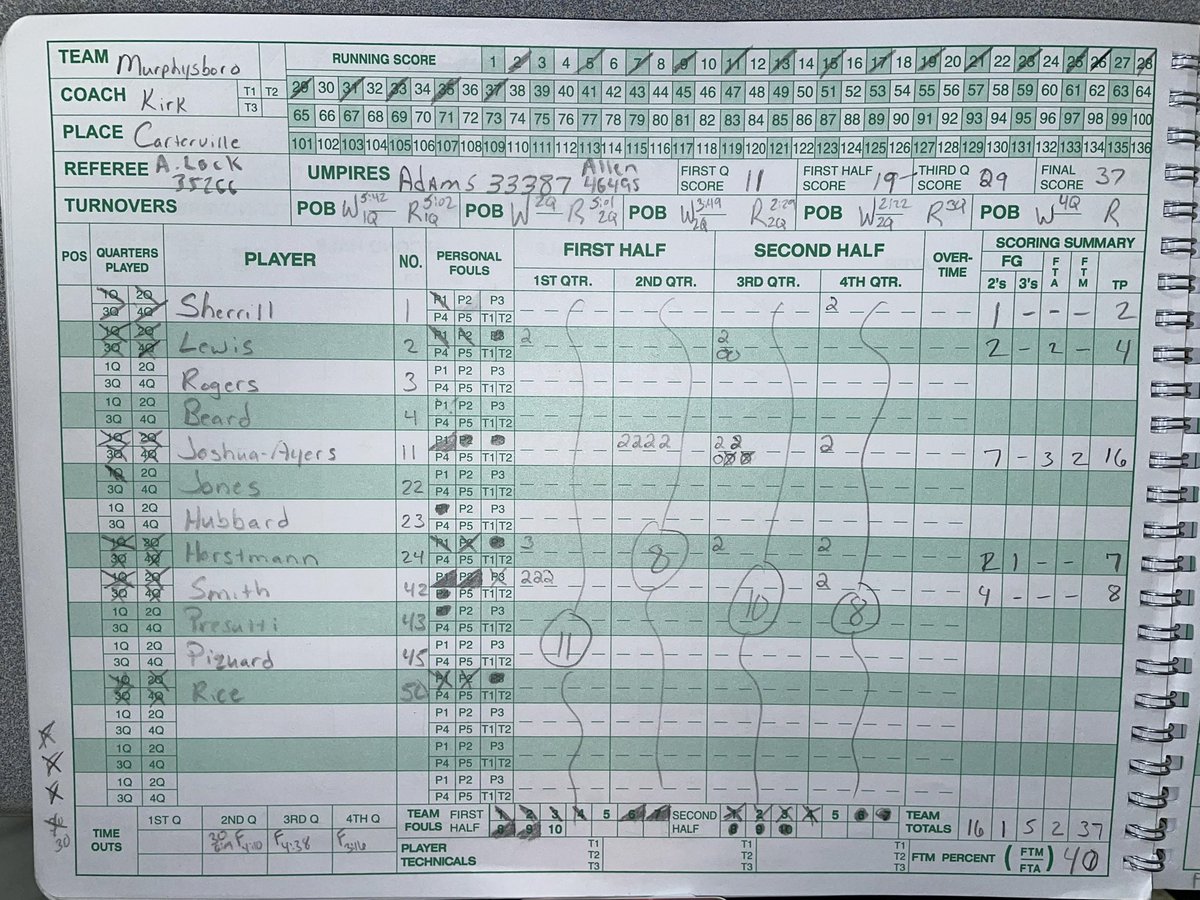 TEAM Murphysboro RUNNING SCORE 1 2 3 4 5 6 7 8 9 10 11 12 13 14 15 16 17 18 19 20 21 22 23 24 25 26 27 28
COACH Kirk T1 T2 T3 29 30 31 32 33 34 35 36 37 38 39 40 41 42 43 44 45 46 47 48 49 50 51 52 53 54 55 56 57 58 59 60 61 62 63 64
65 66 67 68 69 70 71 72 73 74 75 76 77 78 79 80 81 82 83 84 85 86 87 88 89 90 91 92 93 94 95 96 97 98 99 100
PLACE Carterville 101 102 103 104 105 106 107 108 109 110 111 112 113 114 115 116 117 118 119 120 121 122 123 124 125 126 127 128 129 130 131 132 133 134 135 136
REFEREE A. Lock 35266 UMPIRES Adams 33387 Allen 46495 FIRST Q SCORE 11 FIRST HALF SCORE 19 THIRD Q SCORE 29 FINAL SCORE 37
TURNOVERS POB W 5:42 1Q R 5:02 1Q POB W 2Q R 5:01 2Q POB W 3:49 2Q R 2:29 2Q POB W 2:22 2Q R 3Q POB W 4Q R
POS QUARTERS PLAYED PLAYER NO. PERSONAL FOULS FIRST HALF SECOND HALF OVER-TIME SCORING SUMMARY
1ST QTR. 2ND QTR. 3RD QTR. 4TH QTR. FG 2's 3's FTA FTM TP
1Q 2Q 3Q 4Q Sherrill 1 P1 P2 P3 P4 P5 T1 T2 2 1 - - - 2
1Q 2Q 3Q 4Q Lewis 2 P1 P2 P3 P4 P5 T1 T2 2 2 00 2 - 2 - 4
1Q 2Q 3Q 4Q Rogers 3 P1 P2 P3 P4 P5 T1 T2
1Q 2Q 3Q 4Q Beard 4 P1 P2 P3 P4 P5 T1 T2
1Q 2Q 3Q 4Q Joshua-Ayers 11 P1 P2 P3 P4 P5 T1 T2 2222 2 2 2 7 - 3 2 16
1Q 2Q 3Q 4Q Jones 22 P1 P2 P3 P4 P5 T1 T2
1Q 2Q 3Q 4Q Hubbard 23 P2 P3 P4 P5 T1 T2
1Q 2Q 3Q 4Q Horstmann 24 P1 P2 P3 P4 P5 T1 T2 3 8 2 2 2 1 - - 7
1Q 2Q 3Q 4Q Smith 42 P1 P2 P3 P4 P5 T1 T2 222 2 4 - - - 8
1Q 2Q 3Q 4Q Presutti 43 P2 P3 P4 P5 T1 T2 10 8
1Q 2Q 3Q 4Q Pizuard 45 P1 P2 P3 P4 P5 T1 T2 11
1Q 2Q 3Q 4Q Rice 50 P1 P2 P3 P4 P5 T1 T2
1Q 2Q 3Q 4Q P1 P2 P3 P4 P5 T1 T2
1Q 2Q 3Q 4Q P1 P2 P3 P4 P5 T1 T2
1Q 2Q 3Q 4Q P1 P2 P3 P4 P5 T1 T2
30
TIME OUTS 1ST Q 2ND Q 3RD Q 4TH Q TEAM FOULS FIRST HALF 1 2 3 4 5 6 7 8 9 10 SECOND HALF 1 2 3 4 5 6 7 8 9 10 TEAM TOTALS 16 1 5 2 37
30 F 4:10 F 4:38 F 3:16 PLAYER TECHNICALS T1 T2 T3 T1 T2 T3 T1 T2 T3 FTM PERCENT (FTM FTA) 40